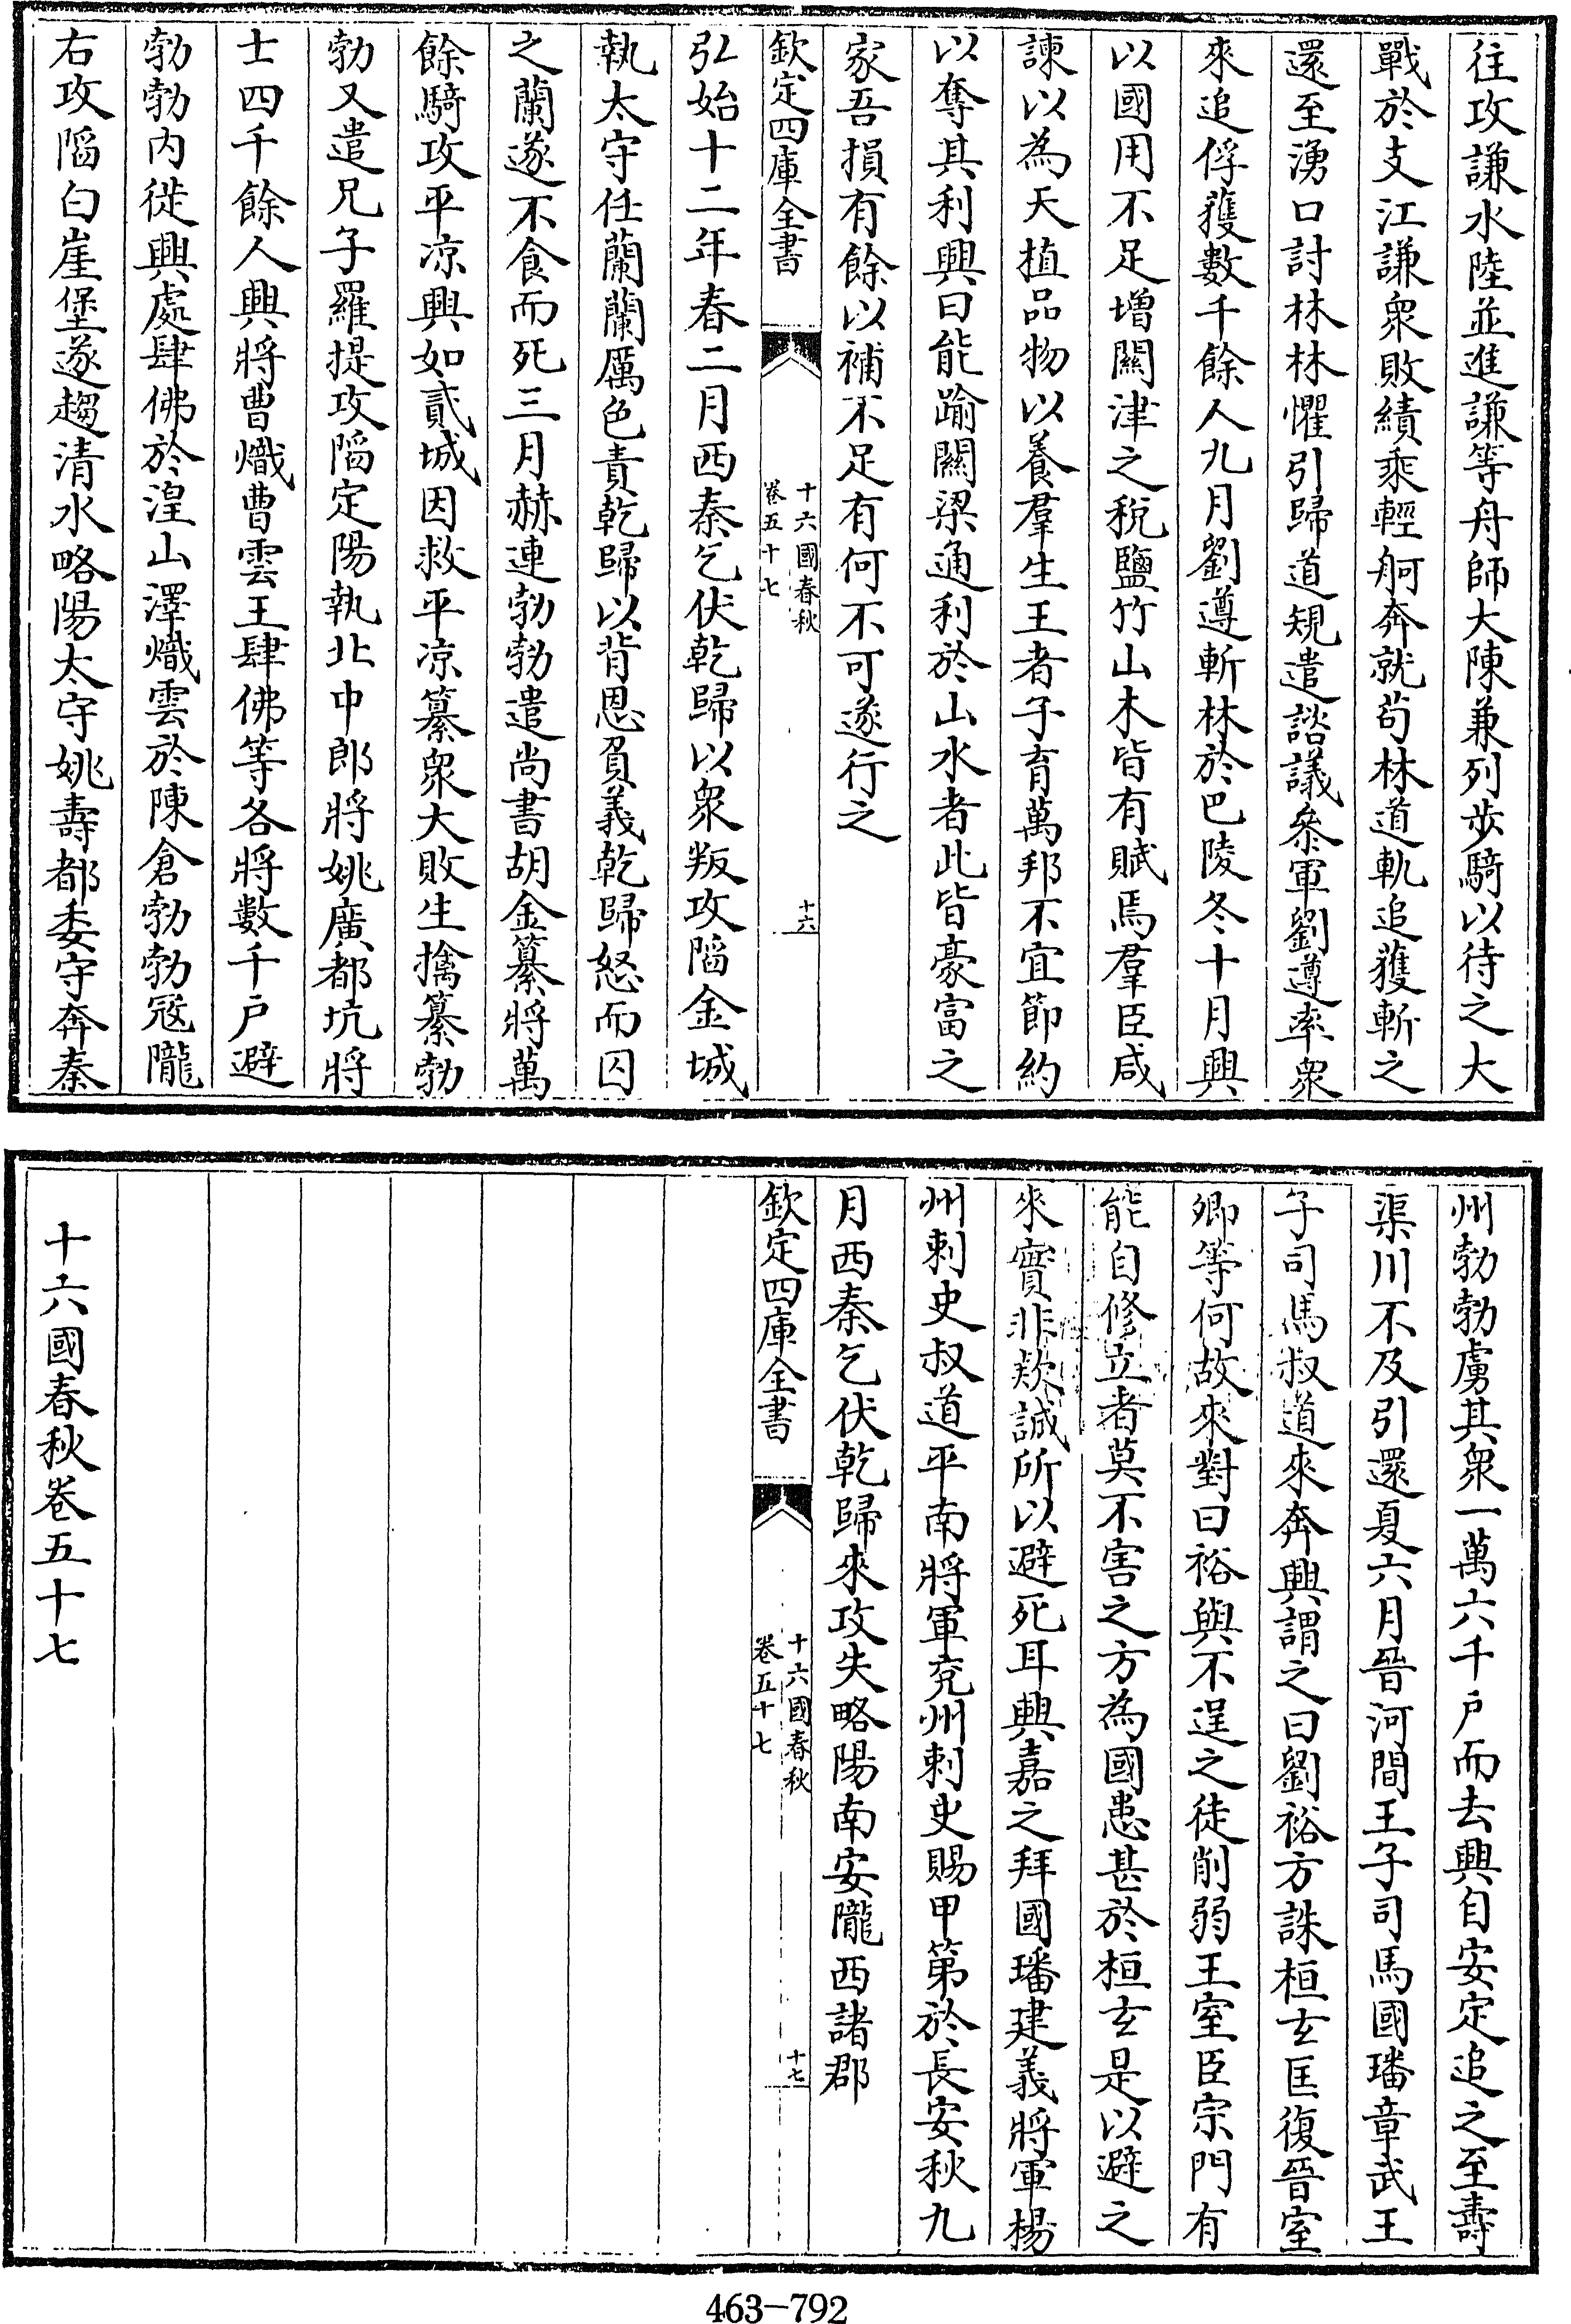 往攻謙水陸並進謙等舟師大陳兼列步騎以待之大
戰於支江謙衆敗績乘輕舸奔就茍林道軌追獲斬之
還至湧口討林林懼引歸道規遣諮議叅軍劉遵率衆
來追俘獲數千餘人九月劉遵斬林於巴陵冬十月興
以國用不足增關津之稅鹽竹山木皆有賦焉羣臣咸
諫以為天植品物以養羣生王者子育萬邦不宜節約
以奪其利興曰能踰關梁通利於山水者此皆豪富之
家吾損有餘以補不足有何不可遂行之
欽定四庫全書
十六國春秋
卷五十七
十六
弘始十二年春二月西秦乞伏乾歸以衆叛攻䧟金城
執太守任蘭蘭厲色責乾歸以背恩負義乾歸怒而囚
之蘭遂不食而死三月赫連勃勃遣尚書胡金纂將萬
餘騎攻平凉興如貳城因救平凉纂衆大敗生擒纂勃
勃又遣兄子羅提攻䧟定陽執北中郎將姚廣都坑將
士四千餘人興將曹熾曹雲王肆佛等各將數千户避
勃勃内徙興處肆佛於湟山澤熾雲於陳倉勃勃寇隴
右攻䧟白崖堡遂趨清水略陽太守姚壽都委守奔秦
州勃勃虜其衆一萬六千户而去興自安定追之至壽
渠川不及引還夏六月晉河間王子司馬國璠章武王
子司馬叔道來奔興謂之曰劉裕方誅桓玄匡復晉室
卿等何故來對曰裕與不逞之徒削弱王室臣宗門有
能自修立者莫不害之方為國患甚於桓玄是以避之
來實非欵誠所以避死耳興嘉之拜國璠建義將軍楊
州刺史叔道平南將軍兖州刺史賜甲第於長安秋九
月西秦乞伏乾歸來攻失略陽南安隴西諸郡
欽定四庫全書
十六國春秋
卷五十七
十七
十六國春秋卷五十七
463-792